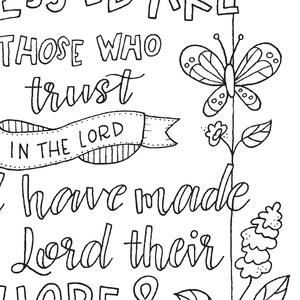 ARE
THOSE WHO
trust
IN THE LORD
have made
Lord their
HOPE &